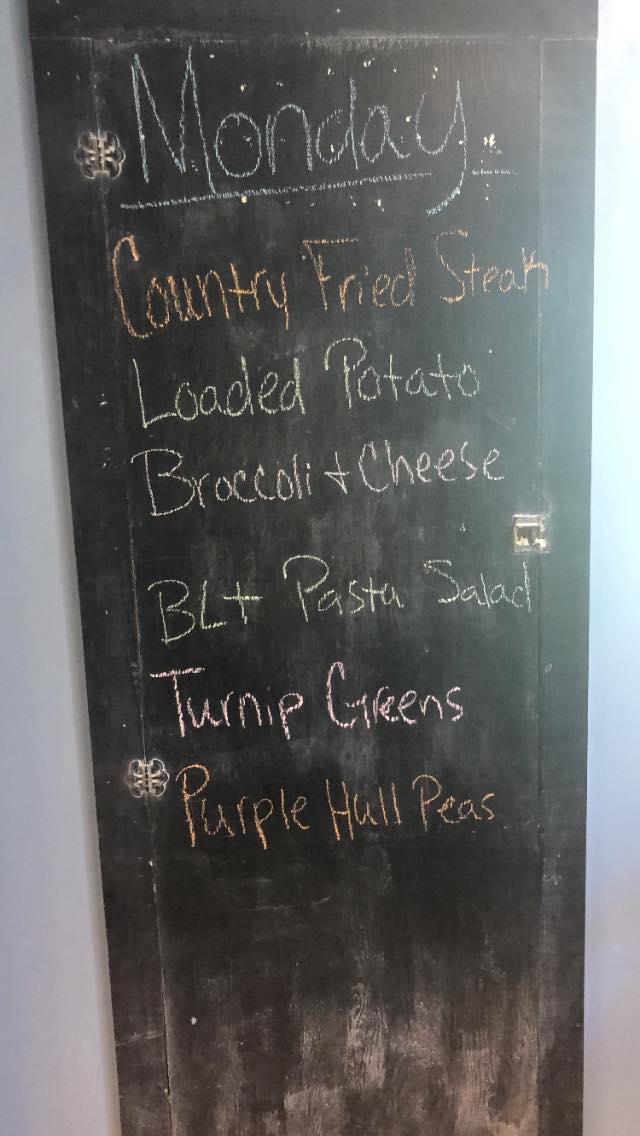 Monday
Country Fried Steak
Loaded Potato
Broccoli + Cheese
BLt Pasta Salad
Turnip Greens
Purple Hull Peas